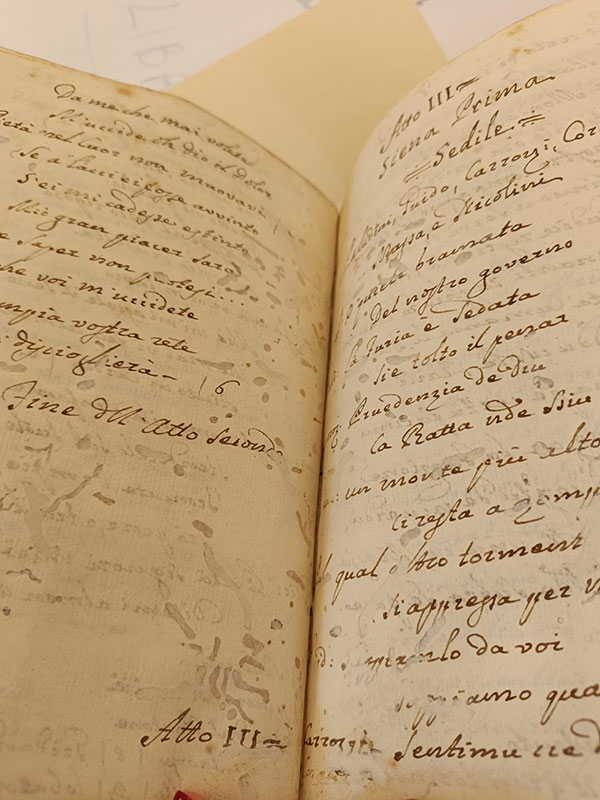 LIBR
Da me che mai volete
M'uccideth dio il dolor
Pietà nel cuor non muovavi
Se a lacci fosse avvinto
Sei mi cadesse estinto
Mio gran piacer sarò
saper non potesi...
che voi m'uccidete
empia vostra rete
discioglierà - 16
Fine dll' Atto Second
Atto III =
Atto III =
Siena Prima
= Sedile =
Guido, Carrozzi, Cor
Massa, e Nicolini
quiete bramata
Del nostro governo
La Furia è Sedata
Sie tolto il penar
Pruedenzia de Diu
La Ratta
un monte più alto
Ci resta a
qual altro tormeni
Si appressa per
da voi
Carrozzi: Sentimu